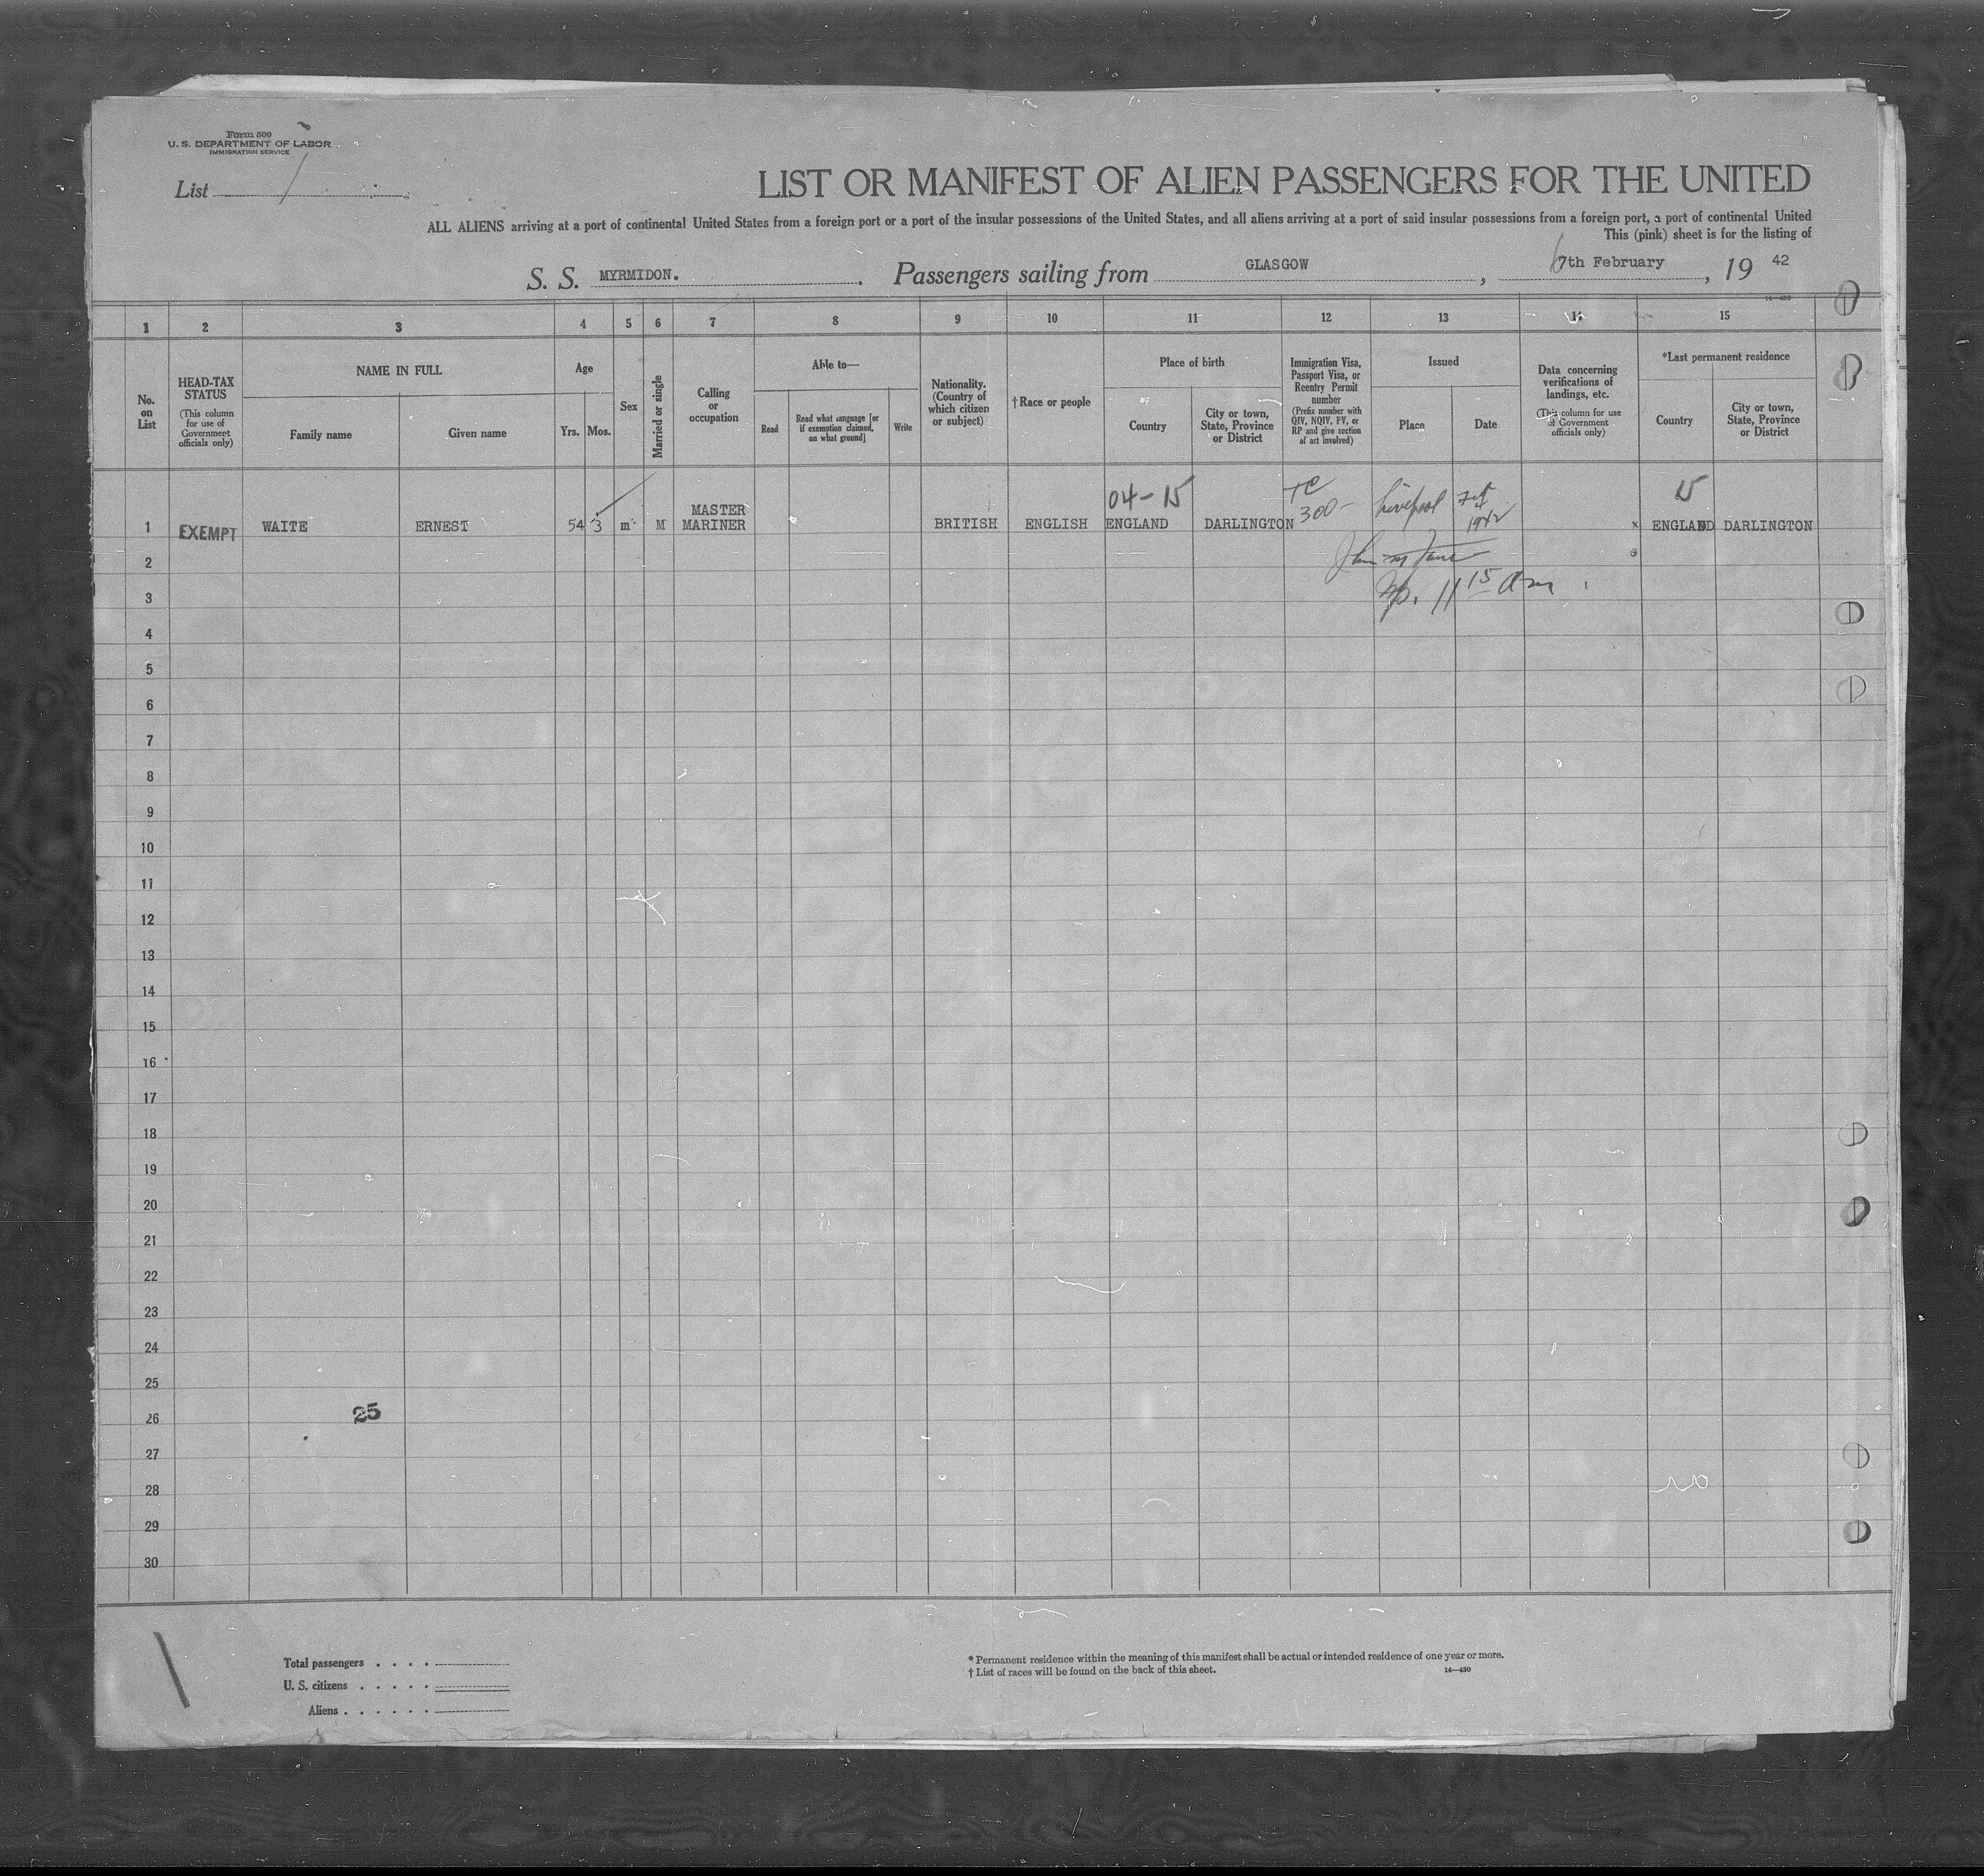 Form 500
U. S. DEPARTMENT OF LABOR
IMMIGRATION SERVICE
List 1
LIST OR MANIFEST OF ALIEN PASSENGERS FOR THE UNITED
ALL ALIENS arriving at a port of continental United States from a foreign port or a port of the insular possessions of the United States, and all aliens arriving at a port of said insular possessions from a foreign port, a port of continental United
This (pink) sheet is for the listing of
S. S. MYRMIDON. Passengers sailing from GLASGOW, 7th February, 19 42
14—430
1 2 3 4 5 6 7 8 9 10 11 12 13 14 15
No. on List
HEAD-TAX STATUS (This column for use of Government officials only)
NAME IN FULL
Family name
Given name
Age
Yrs. Mos.
Sex
Married or single
Calling or occupation
Able to—
Read
Read what language [or if exemption claimed, on what ground]
Write
Nationality. (Country of which citizen or subject)
† Race or people
Place of birth
Country
City or town, State, Province or District
Immigration Visa, Passport Visa, or Reentry Permit number (Prefix number with QIV, NQIV, PV, or RP and give section of act involved)
Issued
Place
Date
Data concerning verifications of landings, etc. (This column for use of Government officials only)
*Last permanent residence
Country
City or town, State, Province or District
04-15 TC 300- Liverpool Feb 1942 15
1 EXEMPT WAITE ERNEST 54 3 m M MASTER MARINER BRITISH ENGLISH ENGLAND DARLINGTON x ENGLAND DARLINGTON
2
3 11 15 am
4
5
6
7
8
9
10
11
12
13
14
15
16
17
18
19
20
21
22
23
24
25
26 25
27
28
29
30
Total passengers . . . .
U. S. citizens . . . . .
Aliens . . . . . .
* Permanent residence within the meaning of this manifest shall be actual or intended residence of one year or more.
† List of races will be found on the back of this sheet. 14—430